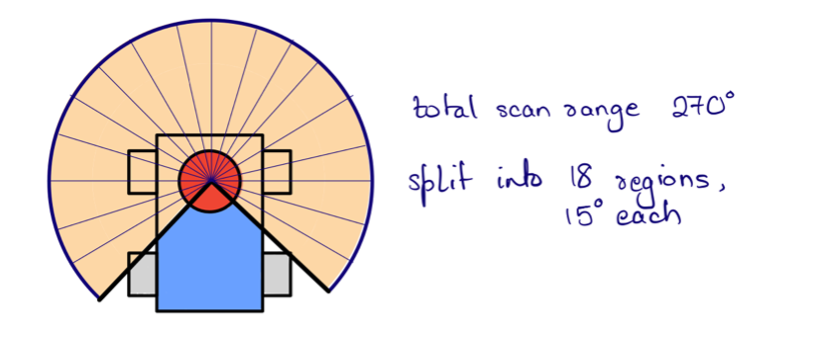 total scan range 270°
split into 18 regions,
15° each